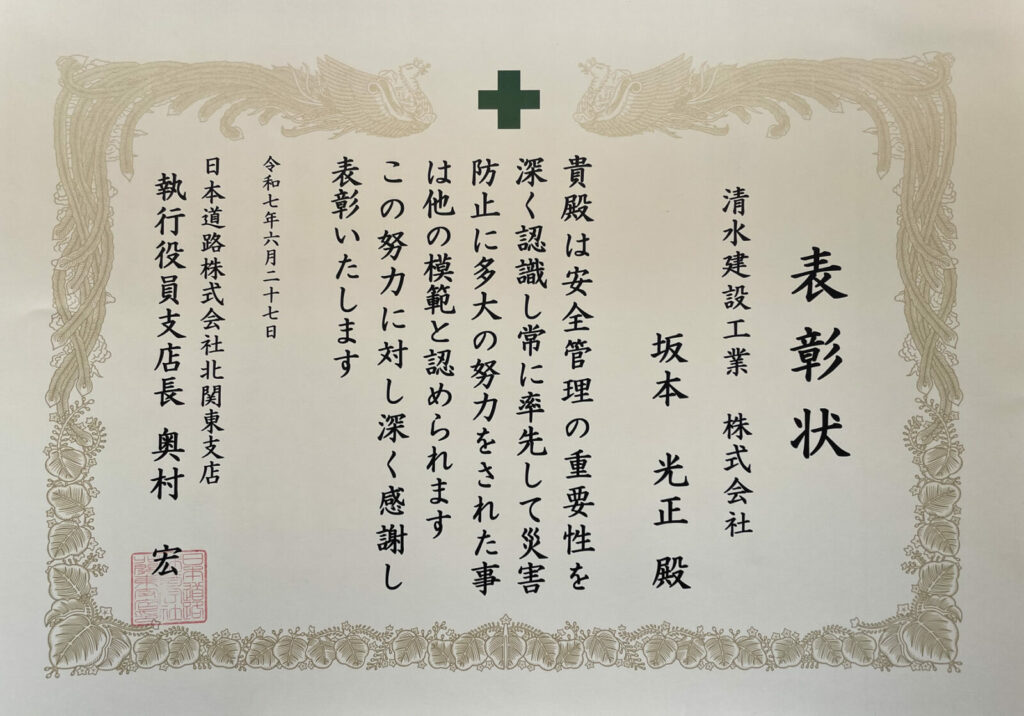 表彰状
清水建設工業 株式会社
坂本 光正 殿
貴殿は安全管理の重要性を
深く認識し常に率先して災害
防止に多大の努力をされた事
は他の模範と認められます
この努力に対し深く感謝し
表彰いたします
令和七年六月二十七日
日本道路株式会社北関東支店
執行役員支店長 奥村 宏